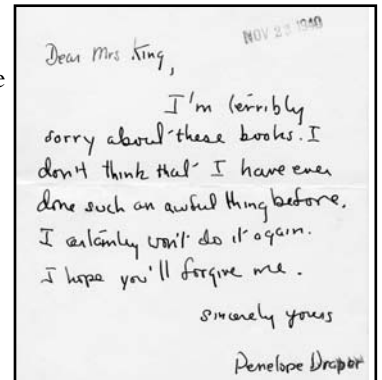 NOV 23 1940
Dear Mrs King,
e
I'm terribly
sorry about these books. I
don't think that I have ever
done such an awful thing before.
I certainley won't do it again.
I hope you'll forgive me.
sincerely yours
Penelope Draper